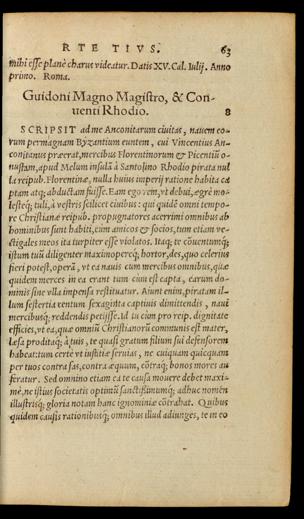 RTE TIVS. 63
mihi esse planè charus videatur. Datis XV. Cal. Iulij. Anno
primo. Roma.
Guidoni Magno Magistro, & Con-
uenti Rhodio. 8
SCRIPSIT ad me Anconitarum ciuitas, nauem eo-
rum permagnam Byzantium euntem, cui Vincentius An-
conitanus præerat, mercibus Florentinorum & Picentiū o-
nustam, apud Melum insulā à Santolino Rhodio pirata nul
la reipub. Florentinæ, nulla huius imperij ratione habita ca
ptam atq; abductam fuisse. Eam ego rem, vt debui, ægrè mo-
lesteq; tuli, à vestris scilicet ciuibus: qui quidē omni tempo-
re Christianæ reipub. propugnatores acerrimi omnibus ab
hominibus sunt habiti, eum amicos & socios, tum etiam ve-
ctigales meos ita turpiter esse violatos. Itaq; te cōuentumq;
istum tuū diligenter maximopercq; hortor, des, quo celerius
fieri potest, operā, vt ea nauis cum mercibus omnibus, quæ
quidem merces in ea erant tum cùm est capta, earum do-
minis sine vlla impensa restituatur. Aiunt enim, piratam il-
lum sestertia centum sexaginta captiuis dimittendis, naui
mercibusq; reddendis petijsse. Id tu cùm pro reip. dignitate
efficies, vt ea, quæ omniū Christianorū communis est mater,
læsa proditaq; à tuis, te quasi gratum filium sui defensorem
habeat: tum certè vt iustitiæ seruias, ne cuiquam quicquam
per tuos contra fas, contra æquum, cōtraq; bonos mores au
feratur. Sed omnino etiam ea te causa mouere debet maxi-
mè, ne istius societatis optimū sanctissimumq; adhuc nomen
illustrisq; gloria notam hanc ignominiæ cōtrahat. Quibus
quidem causis rationibusq; omnibus illud adiunges, te in eo